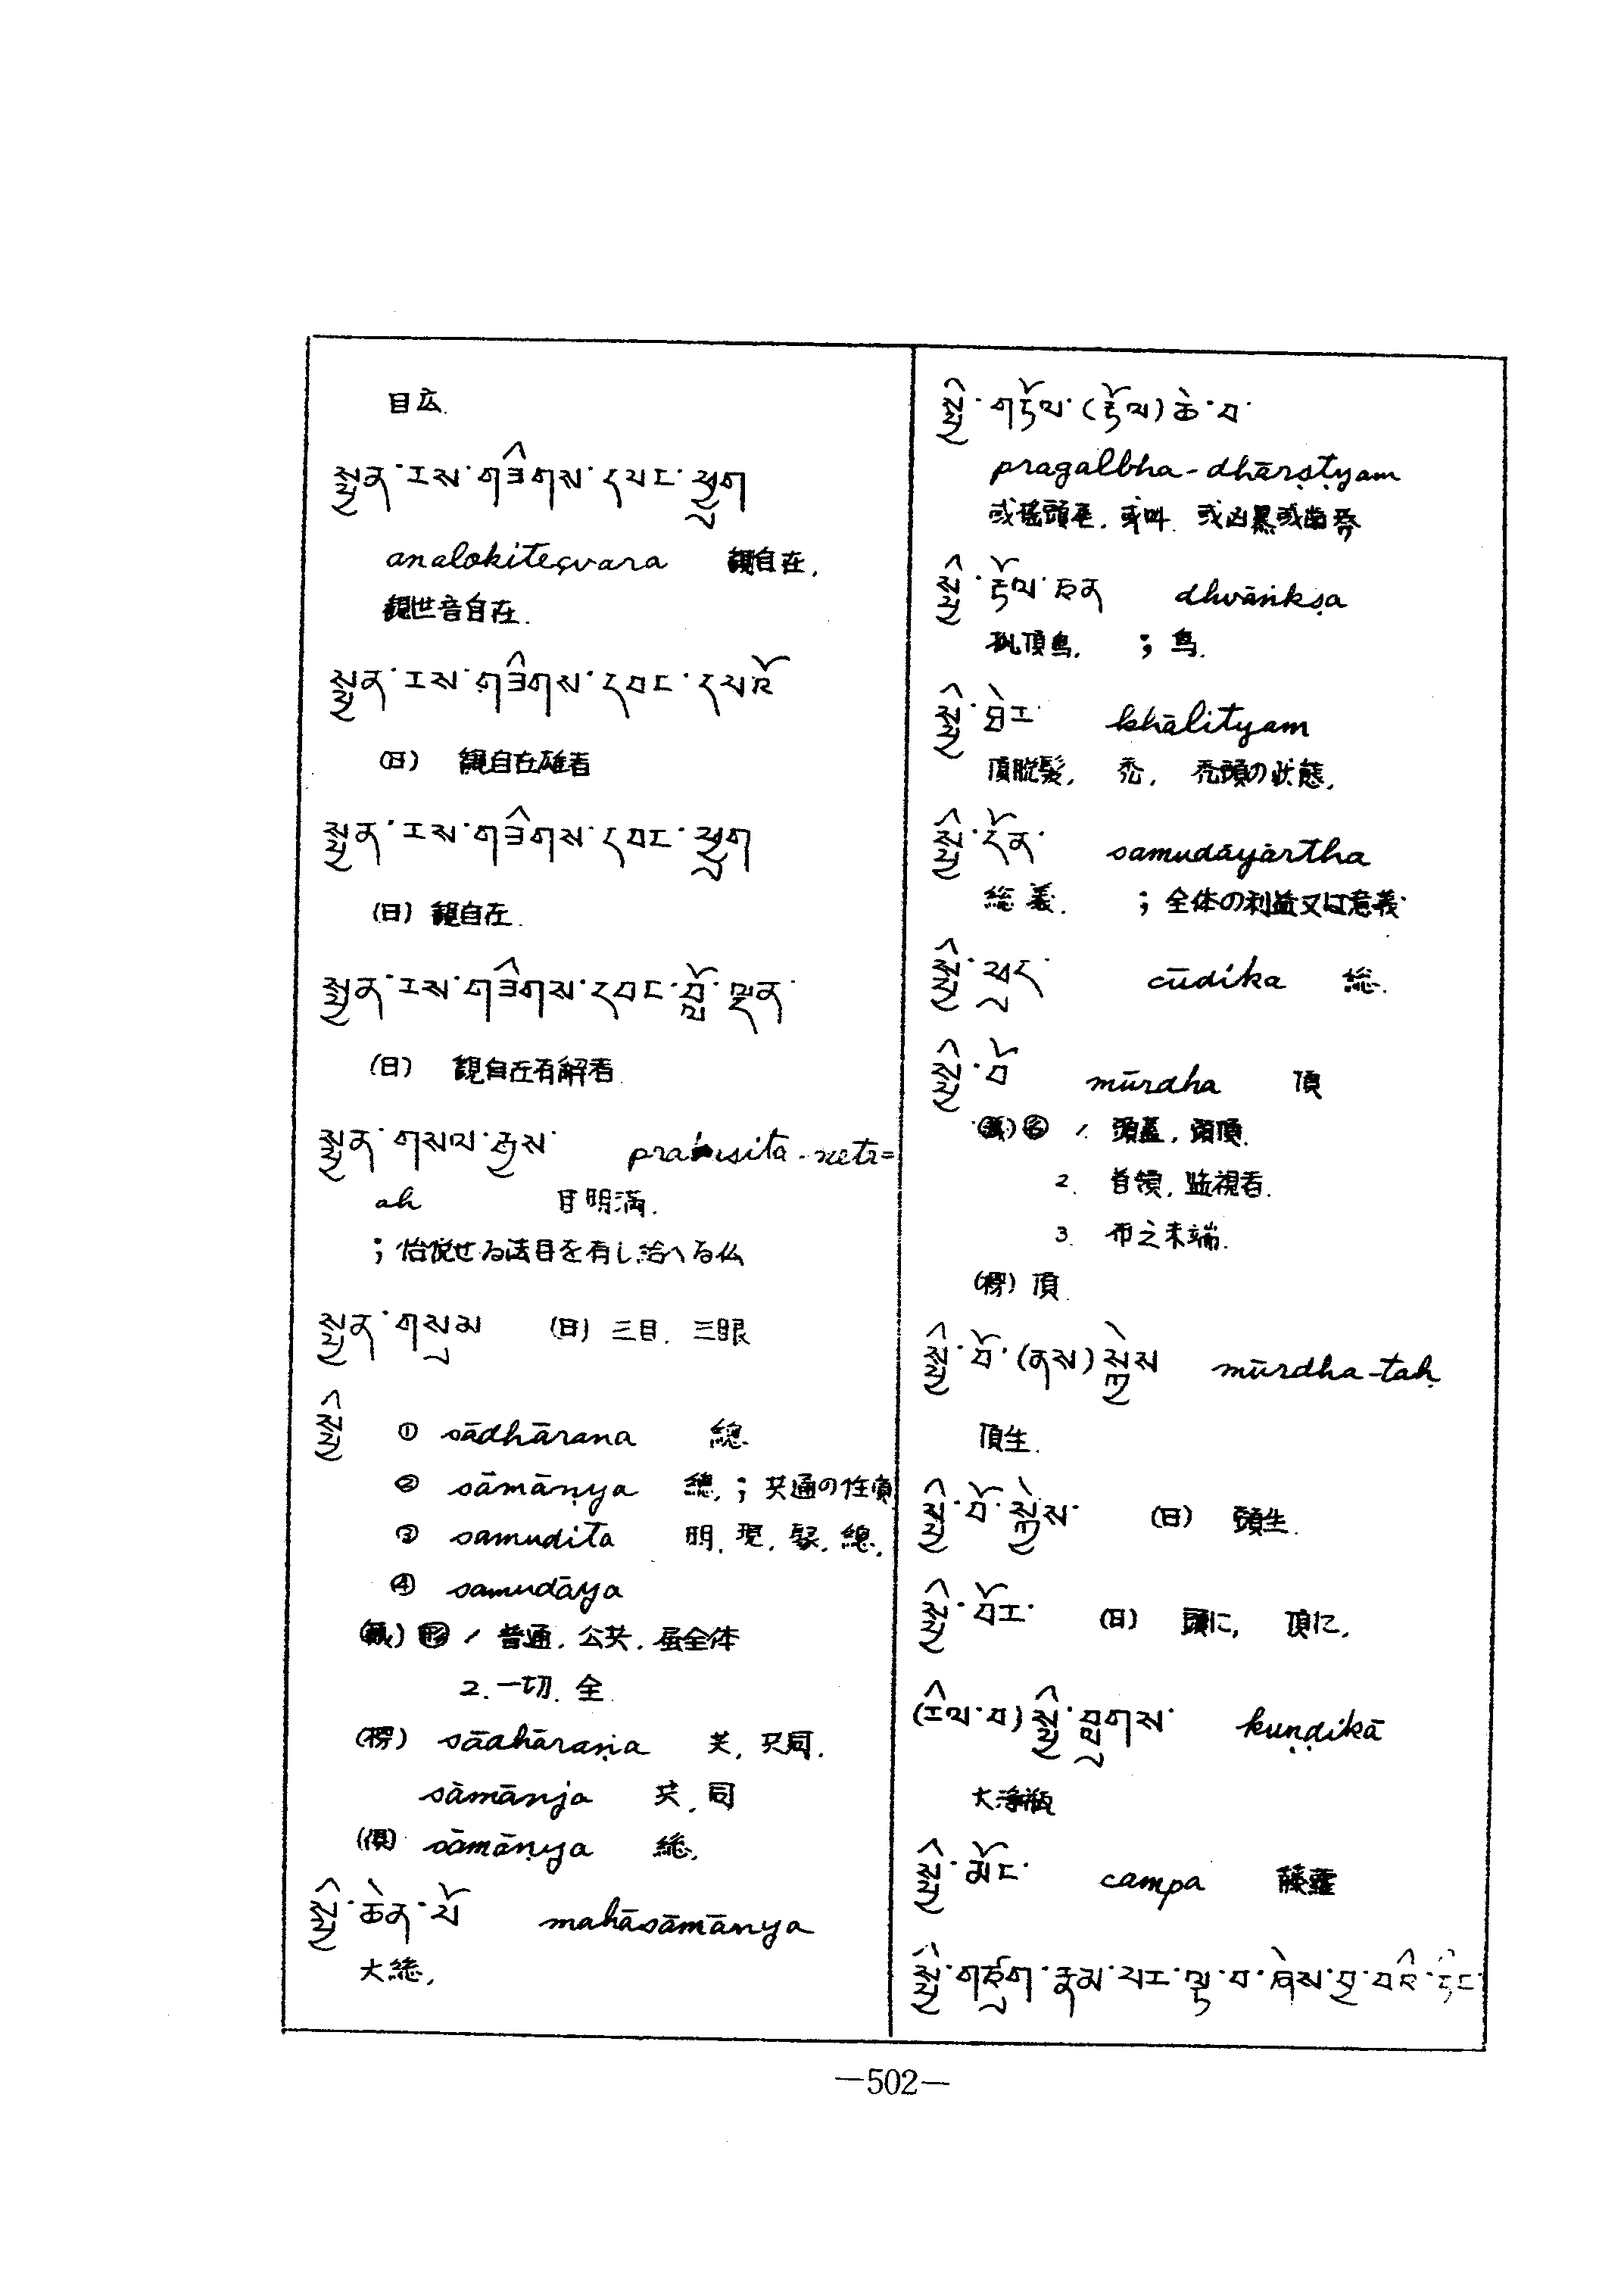 目広.
སྤྱན་རས་གཟིགས་དབང་ཕྱུག
analokiteçvara 観自在,
観世音自在.
སྤྱན་རས་གཟིགས་དབང་དཔའོ
(日) 観自在雄者
སྤྱན་རས་གཟིགས་དབང་ཕྱུག
(日) 観自在.
སྤྱན་རས་གཟིགས་དབང་བློ་ལྡན་
(日) 観自在有解者.
སྤྱན་གསལ་རྒྱས་
ah 目明満.
སྤྱན་གསུམ (日) 三目. 三眼
སྤྱི ① sādhārana 總.
② sāmāṇya 總, ; 共通の性質
③ samudita 明, 現, 聚, 總,
④ samudāya
(蔵) 形 1 普通, 公共, 全体
2. 一切. 全.
(樗) sādhāraṇa 共, 共同.
sāmānja 共, 同
sāmāṇya 総,
སྤྱི་ཆེན་པོ mahāsāmānya
大総,
སྤྱི་གཏོལ་(རྟོལ)ཆེ་བ་
pragalbha-dhārṣṭyam
སྤྱི་རྟོལ་ཅན dhvāṅkṣa
頂鳥, ; 鳥.
སྤྱི་ཐེར་ khālityam
頂脱髪, 禿, 禿頭の状態,
སྤྱི་དོན་ samudāyārtha
総義. ; 全体の利益又は意義
སྤྱི་ཕུད་ cūdika 総.
སྤྱི་བོ mūrdha 頂
(蔵) 名 1. 頭蓋, 頭頂.
2. 首領, 監視者.
3. 布之末端.
(樗) 頂.
སྤྱི་བོ་(ནས)སྐྱེས mūrdha-taḥ
頂生.
སྤྱི་བོ་སྐྱེས་ (日) 頭生.
སྤྱི་བོར་ (日) 頭に, 頂に,
(རིལ་བ)སྤྱི་བླུགས་ kuṇḍikā
大浄瓶
སྤྱི་མོང་ campa 藤蘿
སྤྱི་གཙུག་རྣམ་པར་ལྟ་བ་ཞེས་བྱ་བའི་ཏིང་
—502—